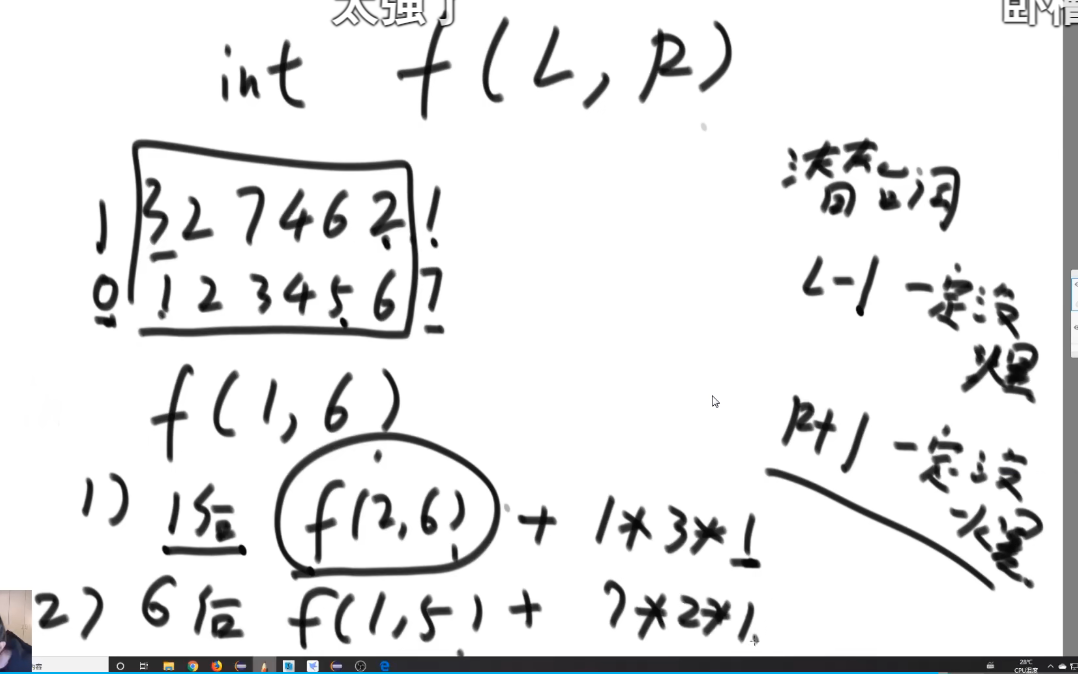 太强了
int f(L, R)
1 3 2 7 4 6 2 1
0 1 2 3 4 5 6 7
f(1, 6)
1) 1后 f(2,6) + 1*3*1
2) 6后 f(1,5) + ?*2*1
潜台词
L-1 一定没
爆
R+1 一定没
爆
28℃
CPU温度